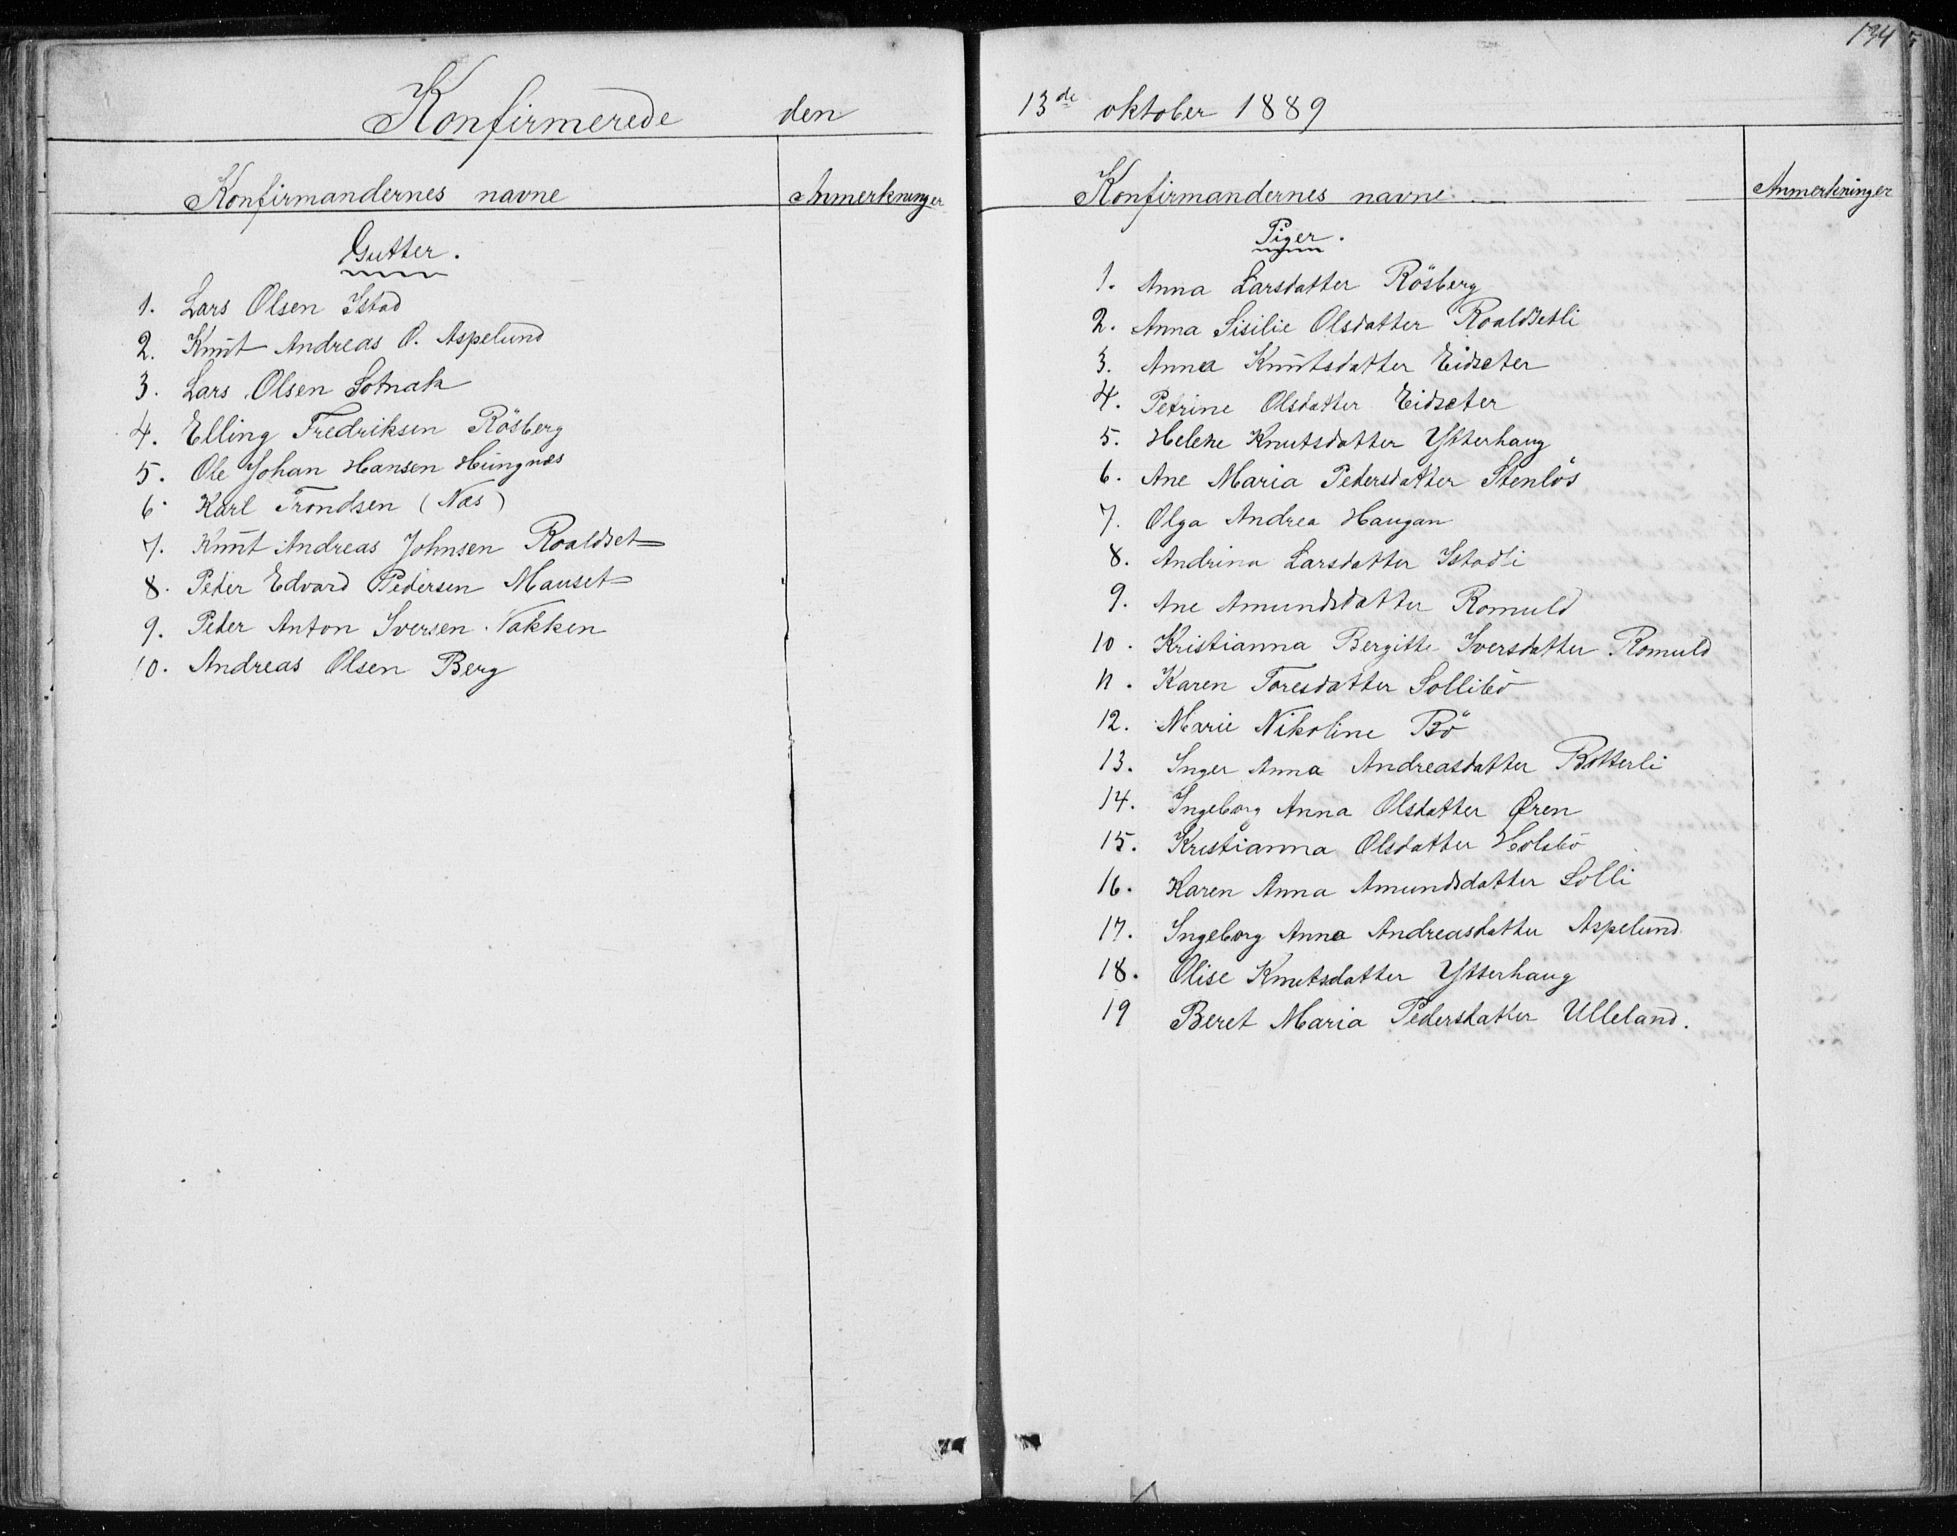 194
Konfirmerede den 13de oktober 1889
Konfirmandernes navne Anmerkninger
Gutter.
1. Lars Olsen Istad
2. Knut Andreas O. Aspelund
3. Lars Olsen Sotnak
4. Elling Fredriksen Rösberg
5. Ole Johan Hansen Hungnes
6. Karl Trondsen (Næs)
7. Knut Andreas Johnsen Roaldset
8. Peder Edvard Pedersen Mauset
9. Peder Anton Iversen Nakken
10. Andreas Olsen Berg
Konfirmandernes navne Anmerkninger
Piger.
1. Anna Larsdatter Rösberg
2. Anna Sisilie Olsdatter Roaldsetli
3. Anna Knutsdatter Eidseter
4. Petrine Olsdatter Eidseter
5. Helene Knutsdatter Ytterhaug
6. Ane Maria Pedersdatter Stenlös
7. Olga Andrea Haugan
8. Andrina Larsdatter Istadli
9. Ane Amundsdatter Romuld
10. Kristianna Bergitte Iversdatter Romuld
11. Karen Toresdatter Sollibö
12. Marie Nikoline Bö
13. Inger Anna Andreasdatter Botterli
14. Ingeborg Anna Olsdatter Øren
15. Kristianna Olsdatter Holsbö
16. Karen Anna Amundsdatter Solli
17. Ingeborg Anna Andreasdatter Aspelund
18. Olise Knutsdatter Ytterhaug
19 Beret Maria Pedersdatter Ulleland.